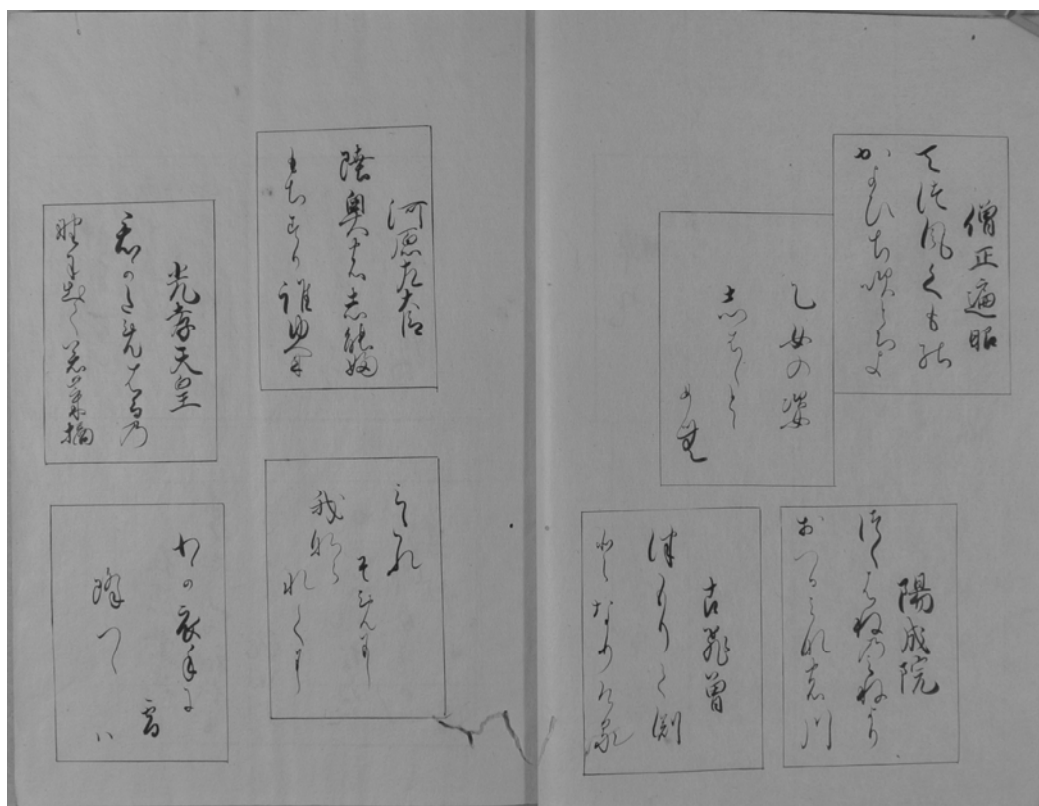 僧正遍昭
天津風くもの
かよひち吹とちよ
乙女の姿
志はしとゝ
め無
陽成院
つくはねのみねより
おつるみなの川
古飛曽
つもりて渕
となりける
河原左大臣
陸奥の志能婦
もちすり誰ゆへに
みたれ
そめにし
我なら
なくに
光孝天皇
君のためはる乃
野に出て若菜摘
わの衣手に
雪
ハ
降つゝ